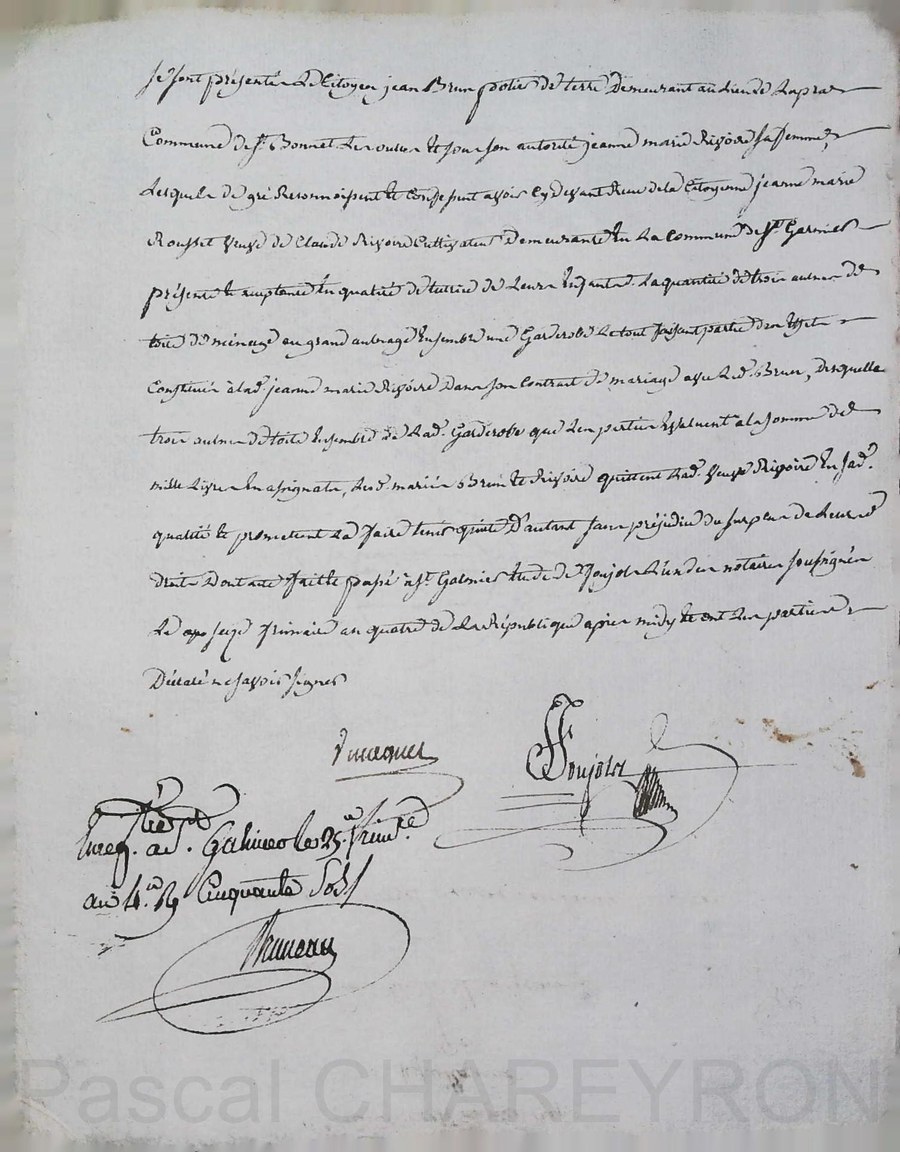 Se sont présentés Le Citoyen jean Brun potier de terre Demeurant au Lieu de Lapra
Commune de St. Bonnet Les oules Et sous son autorité jeanne marie Rivoire sa femme,
Lesquels de gré Reconnoissent Et Confessent avoir Cy devant Recu de la Citoyenne jeanne marie
Rousset veuve de Claude Rivoire Cultivateur Demeurante En La Commune de St. Galmier
présente Et acceptante En qualité de tutrice de Leurs Enfants La quantité de trois aulnes de
toile de ménage au grand aulnage Ensemble une Garderobe Le tout faisant partie des Effets
Constitués à lad. jeanne marie Rivoire Dans son Contrat de mariage avec Led. Brun, desquelles
trois aulnes de toile Ensemble de Lad. Garderobe que Les parties Evaluent a la somme de
mille Livres En assignats, Lesd. mariés Brun Et Rivoire quittent Lad. veuve Rivoire En sad.
qualité Et promettent La faire tenir quitte D'autant sans préjudice du surplus de Leurs
droits Dont acte fait Et passé à St. Galmier Etude de Ponjols L'un des notaires soussignés
Le seize frimaire an quatre de La République après midy Et ont Les parties
Déclaré ne savoir signer
Ponjols
Enreg. a St. Galmier le 25. frimre
an 4. R Cinquante Sols
Bruneau
Pascal CHAREYRON